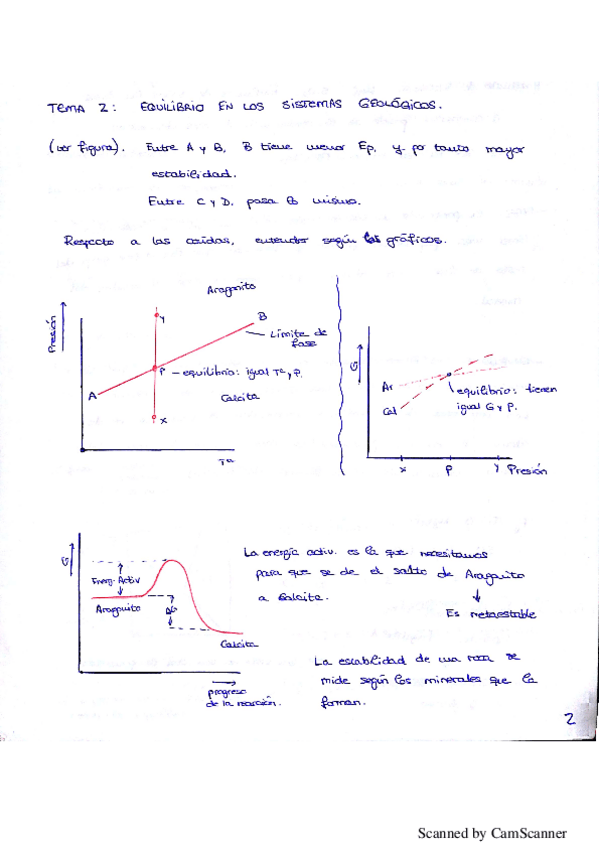 TEMA 2: EQUILIBRIO EN LOS SISTEMAS GEOLÓGICOS.
(ver figura). Entre A y B, B tiene menor Ep, y po tanto mayor
estabilidad.
Entre C y D, pasa lo mismo.
Respecto a las caídas, entender según las gráficos.
Aragonito
Presión
Y
B
Límite de
fase
P - equilibrio: igual Tª y P.
A
Calcita
X
Tª
G
Ar
Cal
equilibrio: tienen
igual G y P.
X P Y Presión
G
Energ. Activ
Aragonito
ΔG
Calcita
progreso
de la reacción.
La energía activ. es la que necesitamos
para que se de el salto de Aragonito
a Calcita.
Es metaestable
La estabilidad de una roca se
mide según los minerales que la
forman.
2
Scanned by CamScanner